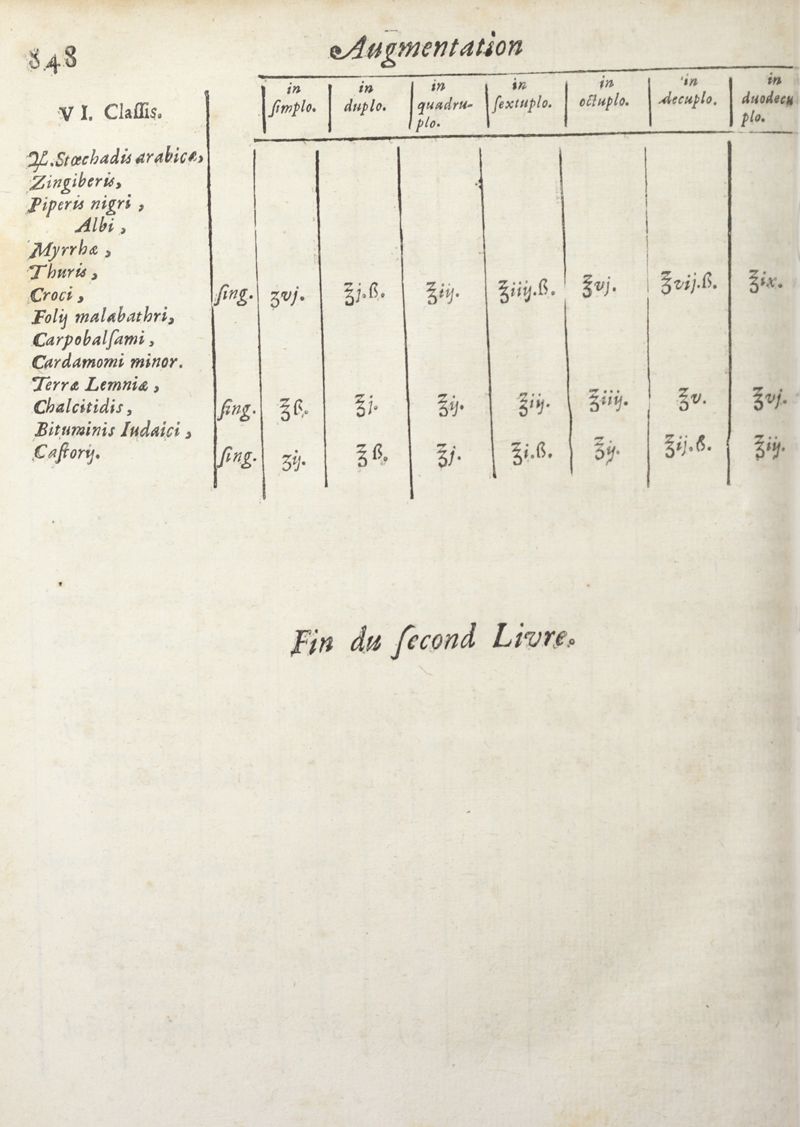 848
Augmentation
VI. Claſſis.
in ſimplo.
in duplo.
in quadru-
plo.
in ſextuplo.
in octuplo.
in decuplo.
in duodecu
plo.
♃.Stœchadis arabicæ,
Zingiberis,
Piperis nigri,
Albi,
Myrrhæ,
Thuris,
Croci, ſing. ʒvj. ℥j.ß. ℥iij. ℥iiij.ß. ℥vj. ℥vij.ß. ℥ix.
Folij malabathri,
Carpobalſami,
Cardamomi minor.
Terræ Lemniæ,
Chalcitidis, ſing. ℥ß. ℥j. ℥ij. ℥iij. ℥iiij. ℥v. ℥vj.
Bituminis Iudaici,
Caſtorij. ſing. ʒij. ℥ß. ℥j. ℥i.ß. ℥ij. ℥ij.ß. ℥iij.
Fin du ſecond Livre.